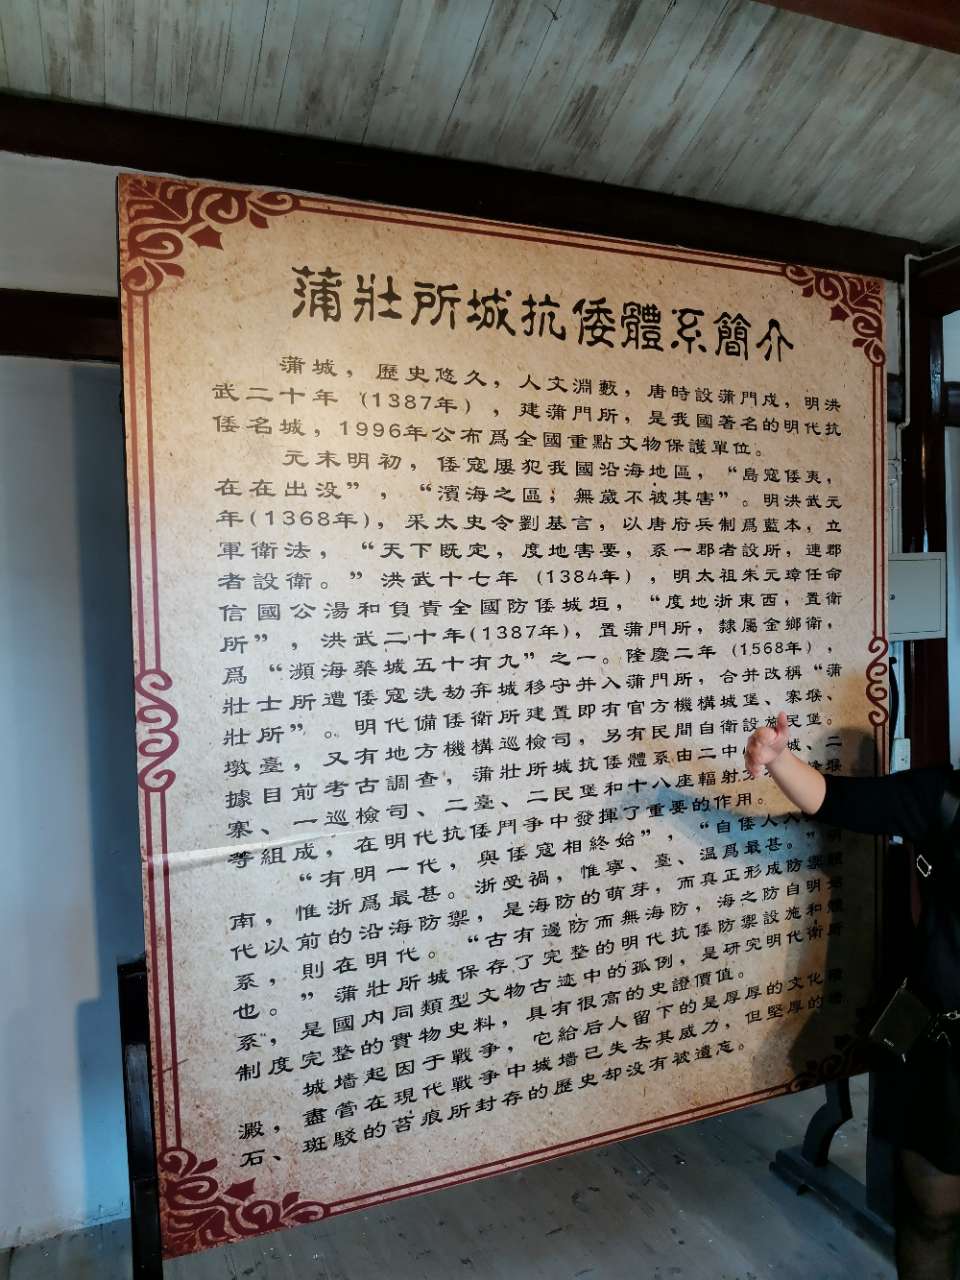 蒲壯所城抗倭體系簡介
蒲城，歷史悠久，人文淵藪，唐時設蒲門戍，明洪
武二十年（1387年），建蒲門所，是我國著名的明代抗
倭名城，1996年公布爲全國重點文物保護單位。
元末明初，倭寇屢犯我國沿海地區，“島寇倭夷，
在在出没”，“濱海之區，無歲不被其害”。明洪武元
年(1368年)，采太史令劉基言，以唐府兵制爲藍本，立
軍衛法，“天下既定，度地害要，系一郡者設所，連郡
者設衛。”洪武十七年（1384年），明太祖朱元璋任命
信國公湯和負責全國防倭城垣，“度地浙東西，置衛
所”，洪武二十年(1387年)，置蒲門所，隸屬金鄉衛，
爲“瀕海築城五十有九”之一。隆慶二年（1568年），
壯士所遭倭寇洗劫弃城移守并入蒲門所，合并改稱“蒲
壯所”。明代備倭衛所建置即有官方機構城堡、寨堠、
墩臺，又有地方機構巡檢司，另有民間自衛設施民堡。
據目前考古調查，蒲壯所城抗倭體系由二中城、二
寨、一巡檢司、二臺、二民堡和十八座輻射堠
等組成，在明代抗倭鬥争中發揮了重要的作用。
“有明一代，與倭寇相終始”，“自倭人入
南，惟浙爲最甚。浙受禍，惟寧、臺、温爲最甚。”明
代以前的沿海防禦，是海防的萌芽，而真正形成防禦
系，則在明代。“古有邊防而無海防，海之防自明
也。”蒲壯所城保存了完整的明代抗倭防禦設施和
系，是國内同類型文物古迹中的孤例，是研究明代衛所
制度完整的實物史料，具有很高的史證價值。
城墻起因于戰争，它給后人留下的是厚厚的文化
澱，盡管在現代戰争中城墻已失去其威力，但堅厚的
石、斑駁的苔痕所封存的歷史却没有被遺忘。